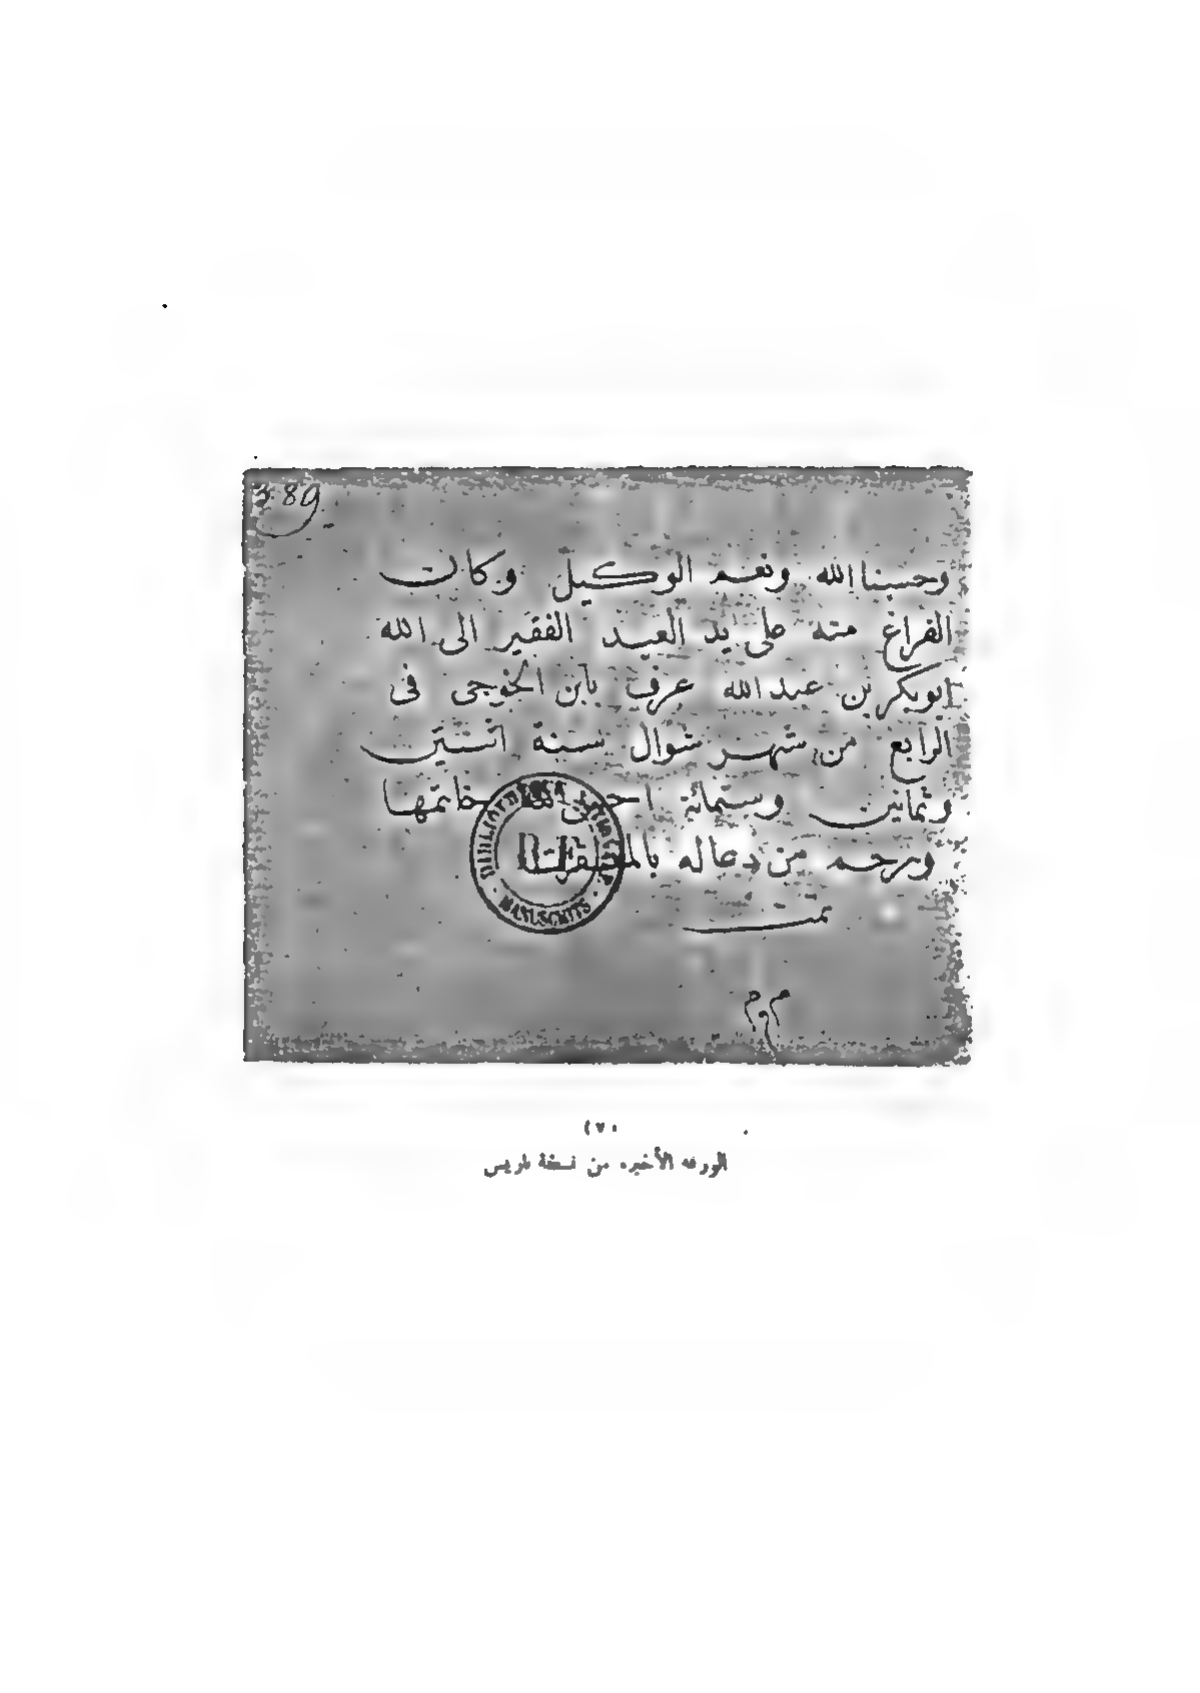 389
وحسبنا الله ونعم الوكيل وكان
الفراغ منه على يد العبد الفقير الى الله
ابوبكر بن عبد الله عرف بابن الخوجى فى
الرابع من شهر شوال سنة اثنتين
وثمانين وستمائة خاتمتها
ورحم من دعا له بالمغفرة
تمت
MANUSCRITS
(٧)
الورقة الأخيرة من نسخة باريس